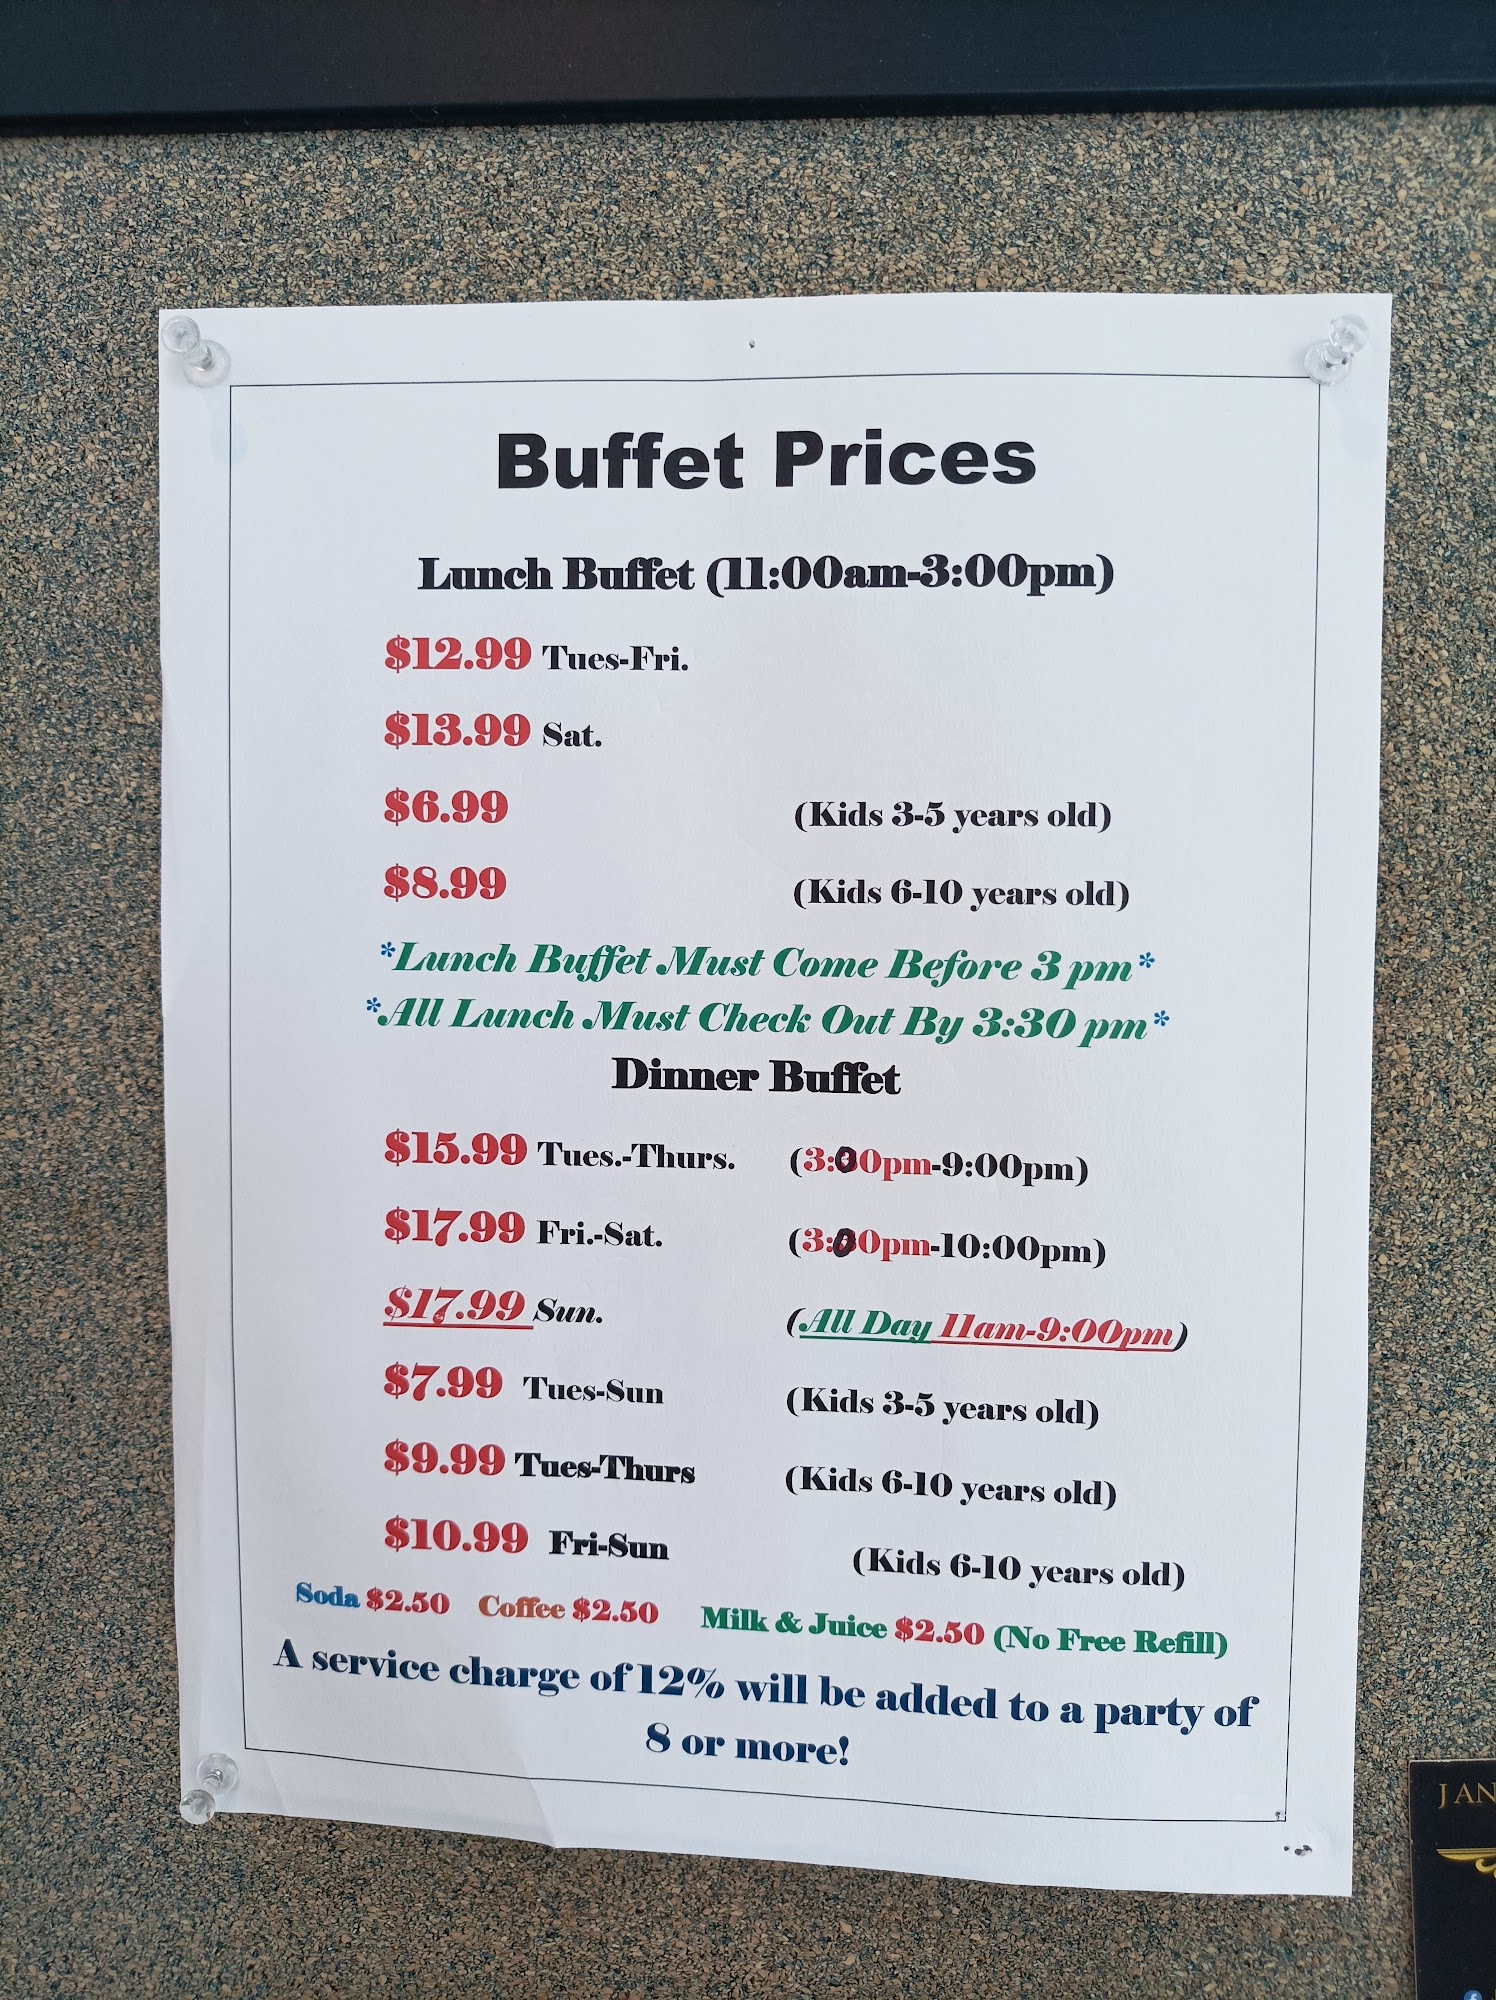 Buffet Prices
Lunch Buffet (11:00am-3:00pm)
$12.99 Tues-Fri.
$13.99 Sat.
$6.99 (Kids 3-5 years old)
$8.99 (Kids 6-10 years old)
*Lunch Buffet Must Come Before 3 pm*
*All Lunch Must Check Out By 3:30 pm*
Dinner Buffet
$15.99 Tues.-Thurs. (3:00pm-9:00pm)
$17.99 Fri.-Sat. (3:00pm-10:00pm)
$17.99 Sun. (All Day 11am-9:00pm)
$7.99 Tues-Sun (Kids 3-5 years old)
$9.99 Tues-Thurs (Kids 6-10 years old)
$10.99 Fri-Sun (Kids 6-10 years old)
Soda $2.50 Coffee $2.50 Milk & Juice $2.50 (No Free Refill)
A service charge of 12% will be added to a party of
8 or more!